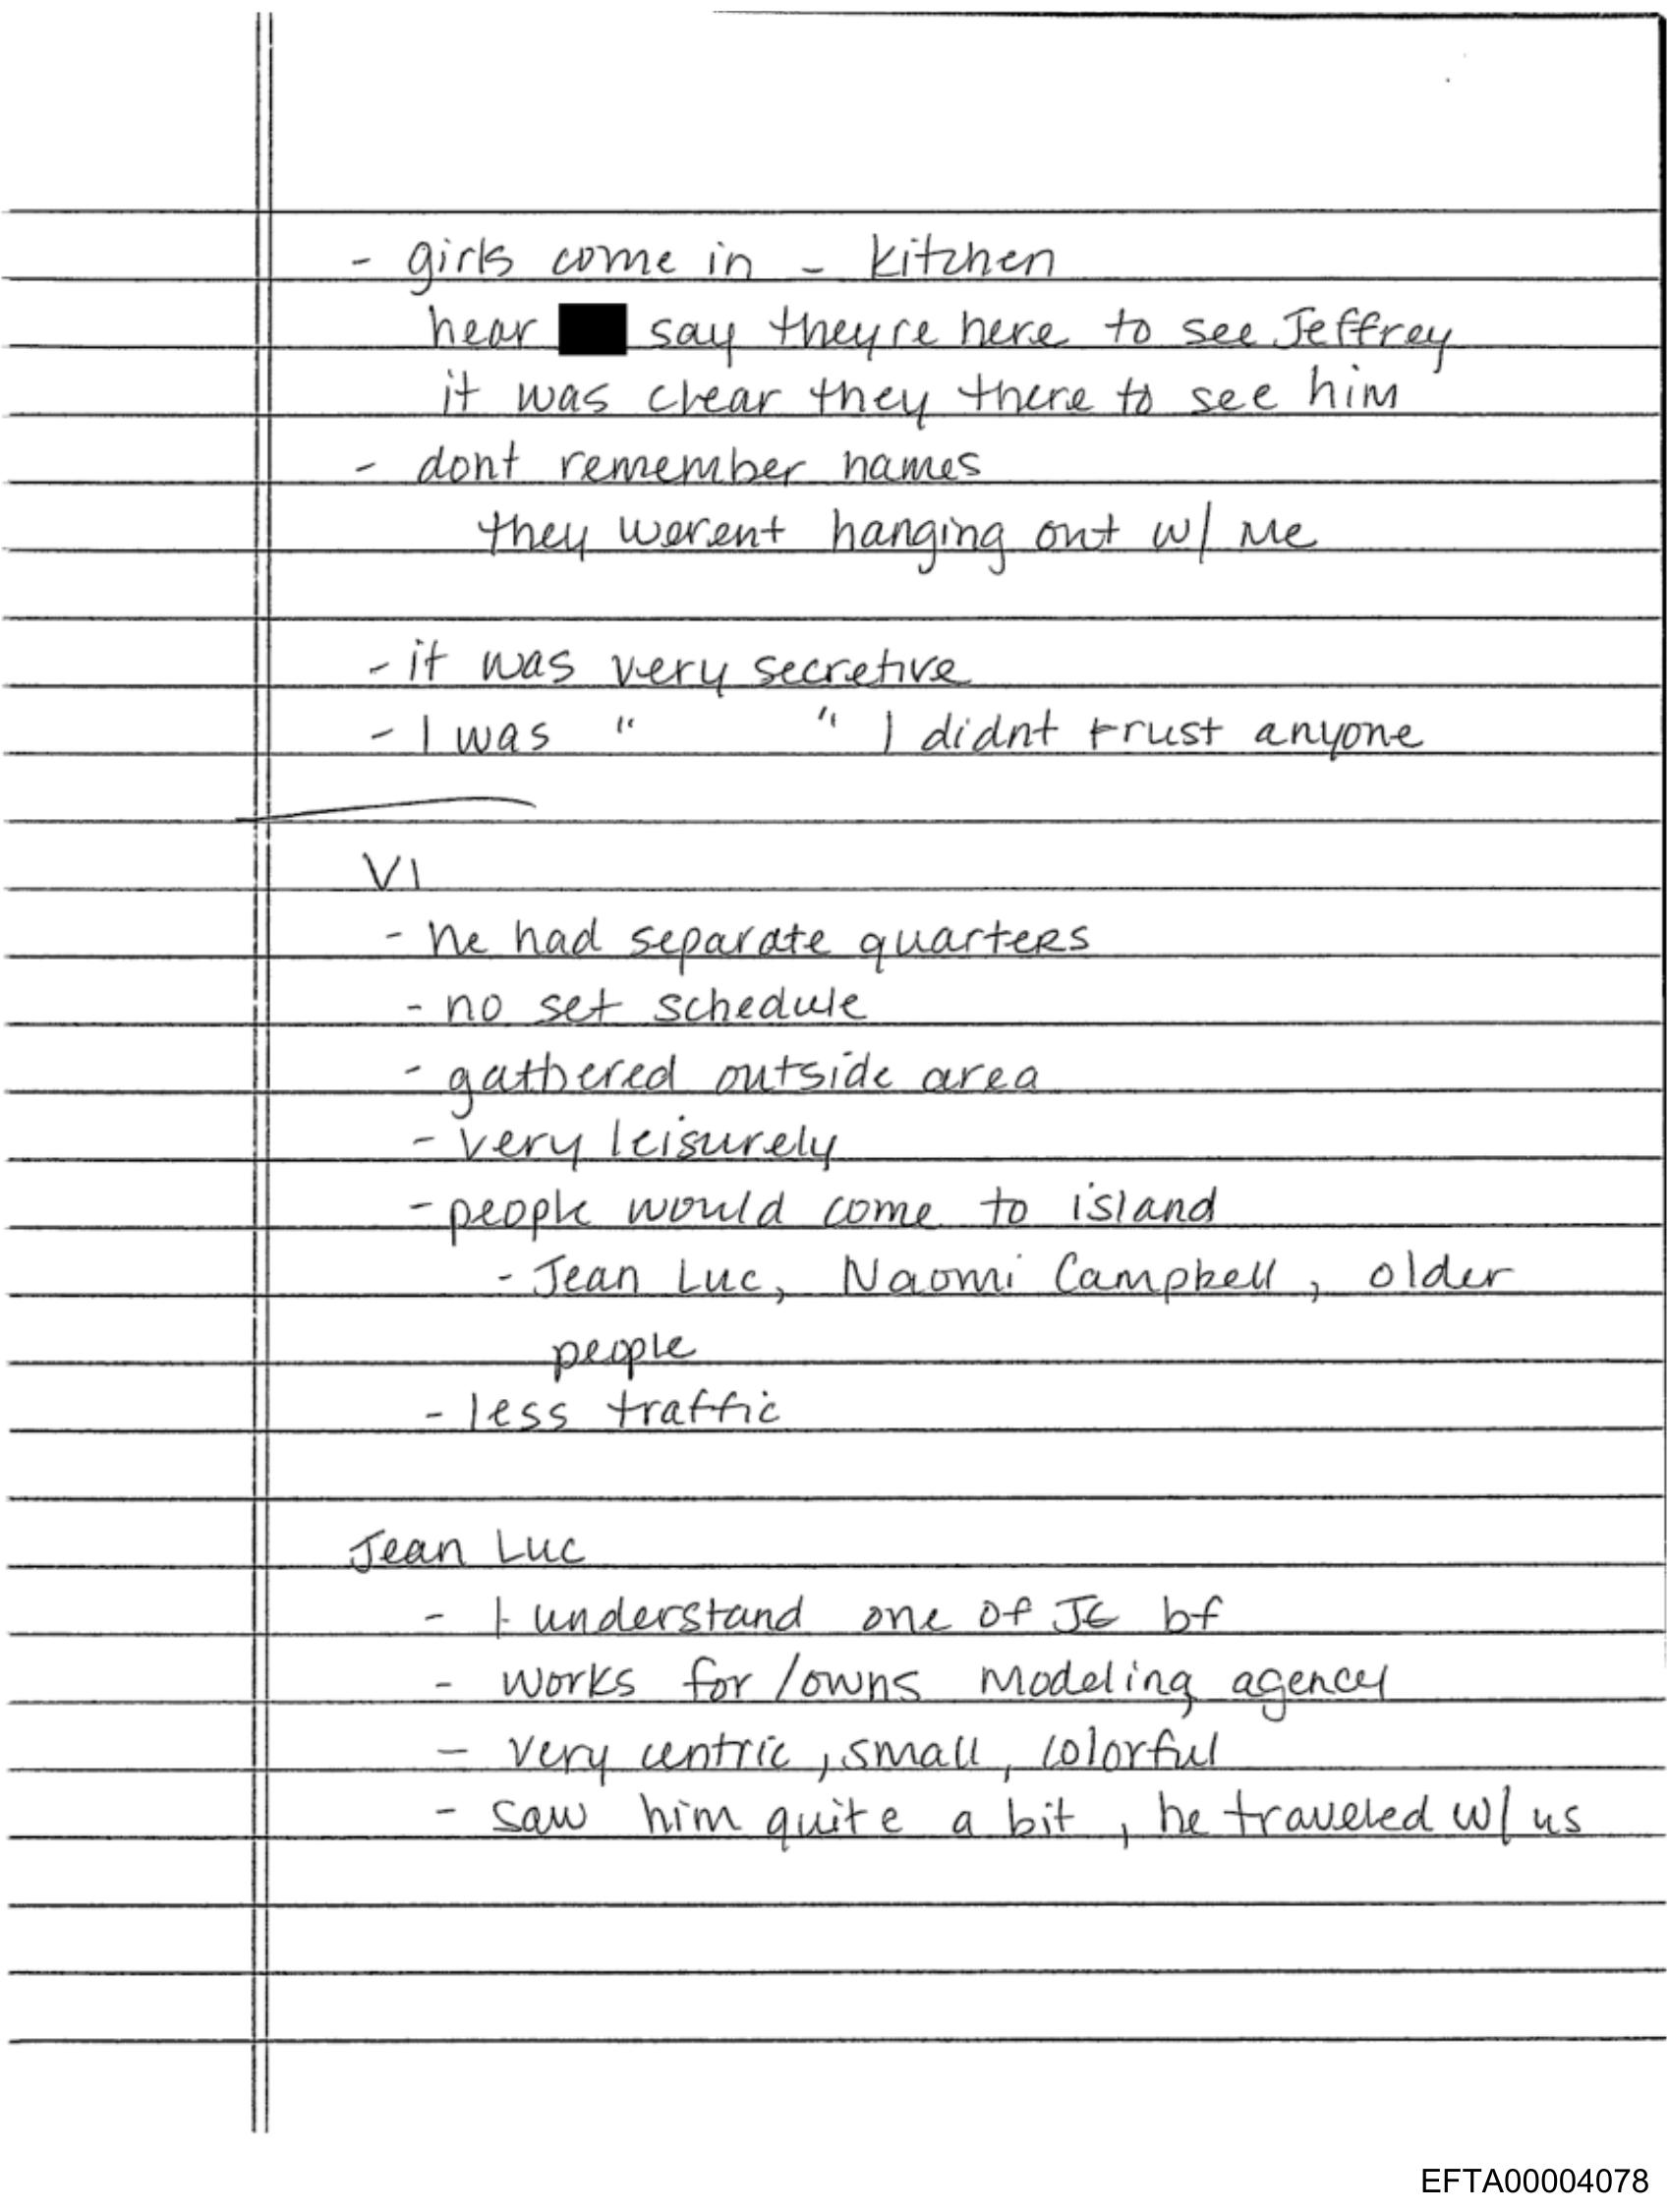 - girls come in - kitchen
hear say theyre here to see Jeffrey
it was clear they there to see him
- dont remember names
they werent hanging out w/ me
- it was very secretive
- I was " " I didnt trust anyone
VI
- he had separate quarters
- no set schedule
- gathered outside area
- very leisurely
- people would come to island
- Jean Luc, Naomi Campbell, older
people
- less traffic
Jean Luc
- I understand one of JE bf
- works for/owns modeling agency
- very centric, small, colorful
- saw him quite a bit, he traveled w/ us
EFTA00004078